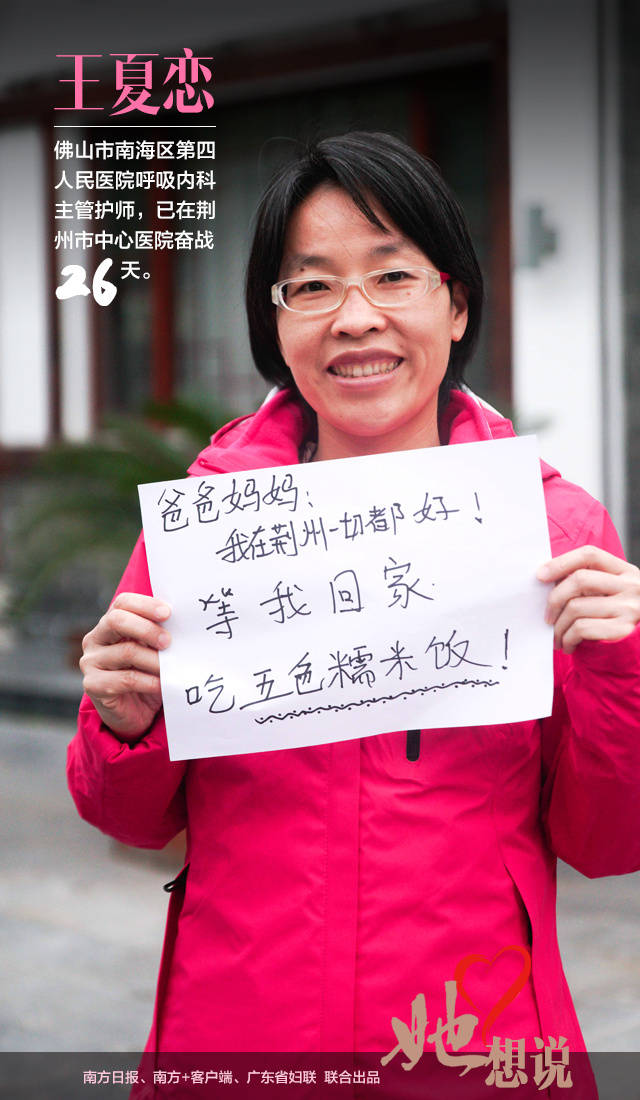 王夏恋
佛山市南海区第四
人民医院呼吸内科
主管护师，已在荆
州市中心医院奋战
26天。
爸爸妈妈：
我在荆州一切都好！
等我回家
吃五色糯米饭！
她想说
南方日报、南方+客户端、广东省妇联 联合出品